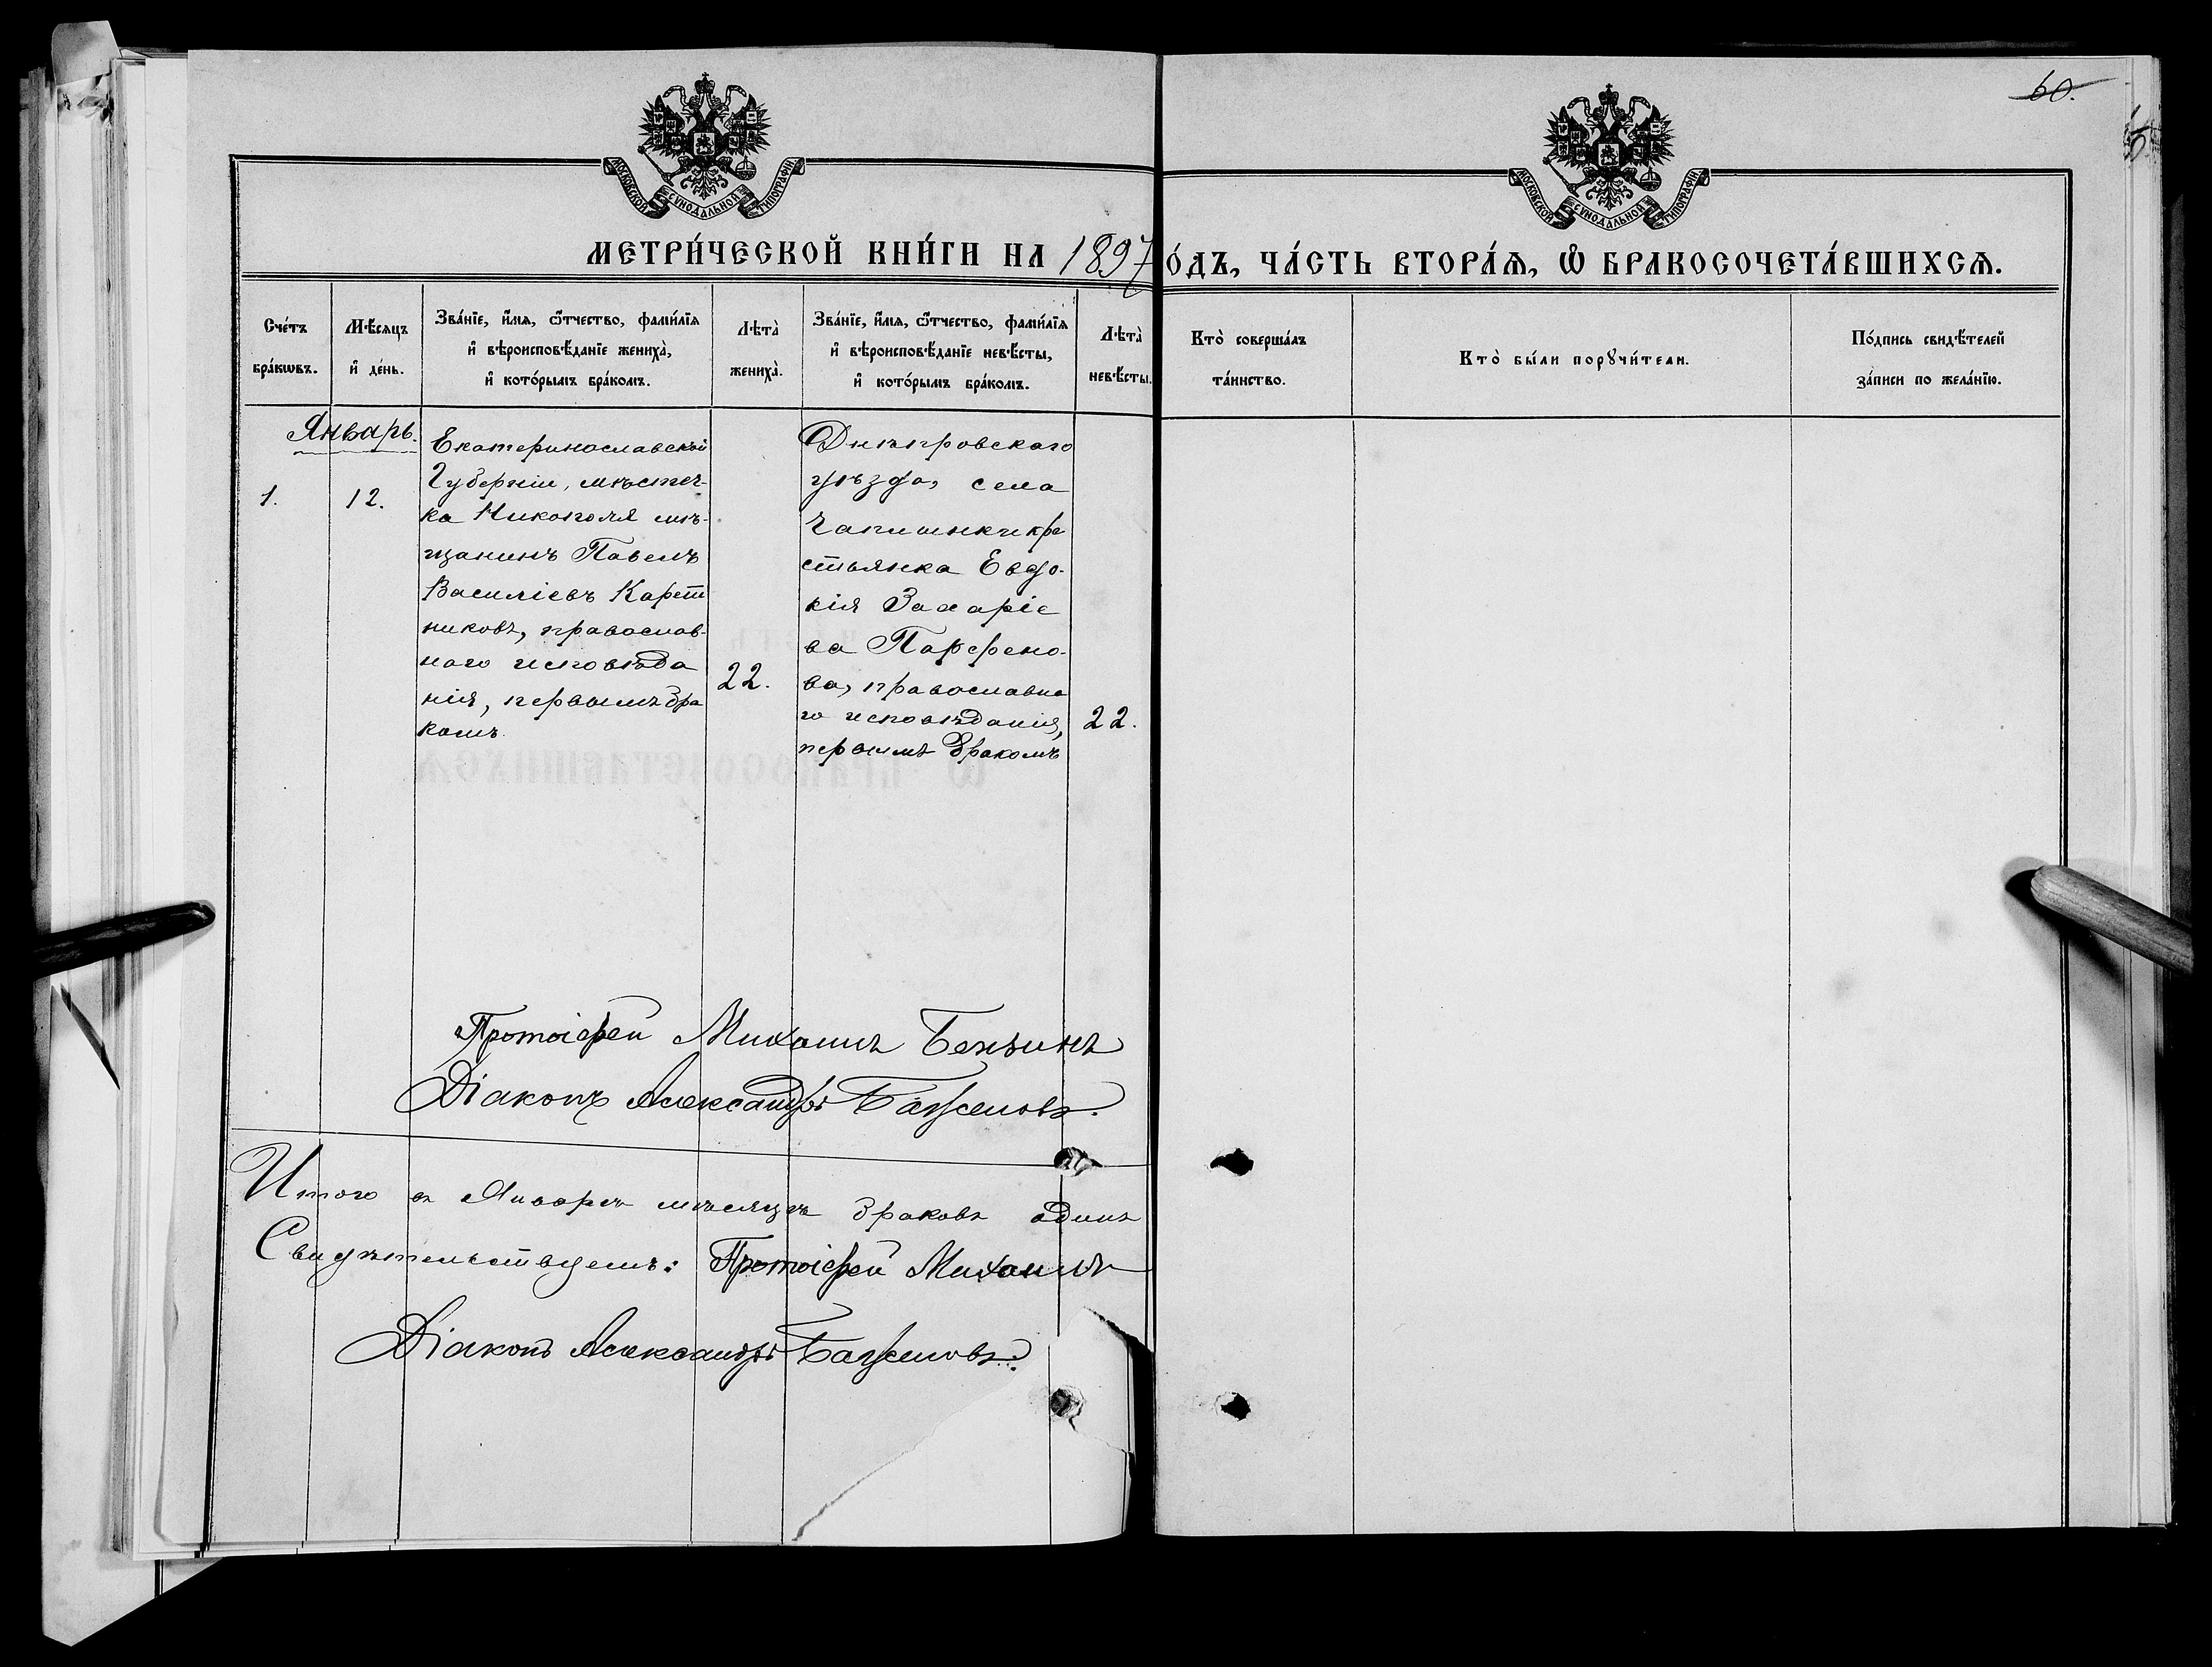 60.
МОСКОВСКОЙ СѴНОДАЛЬНОЙ ТИПОГРАФІИ
МОСКОВСКОЙ СѴНОДАЛЬНОЙ ТИПОГРАФІИ
МЕТРИ́ЧЕСКОЙ КНИ́ГИ НА 1897 О́ДЪ, ЧА́СТЬ ВТОРА́Ѧ, Ѽ БРАКОСОЧЕТА́ВШИХСѦ.
Сче́тъ
бра́кѡвъ.
Мѣ́сяцъ
и҆ де́нь.
Зва́нїе, и҆́мя, ѻ҆́тчество, фами́лїя
и҆ вѣроисповѣ́данїе жениха̀,
и҆ кото́рымъ бра́комъ.
Лѣта̀
жениха̀.
Зва́нїе, и҆́мя, ѻ҆́тчество, фами́лїя
и҆ вѣроисповѣ́данїе невѣ́сты,
и҆ кото́рымъ бра́комъ.
Лѣта̀
невѣ́сты.
Кто̀ соверша́лъ
та́инство.
Кто̀ бы́ли порꙋчи́тели.
По́дпись свидѣ́телей
за́писи по жела́нїю.
Январь.
1.
12.
Екатеринославской
Губерніи, мѣстеч-
ка Никополя мѣ-
щанинъ Павелъ
Василіевъ Карет
никовъ, православ-
наго исповѣда
нія, первымъ бра
комъ.
22.
Днѣпровскаго
уѣзда, села
Чаплынки кре
стьянка Евдо-
кія Захаріе
ва Парфено-
ва, православна
го исповѣданія,
первымъ бракомъ
22.
Протоіерей Михаилъ
Діаконъ Александръ Баженовъ.
Итого въ Январѣ мѣсяцѣ браковъ одинъ
Свидѣтельствуемъ: Протоіерей Михаилъ
Діаконъ Александръ Баженовъ.